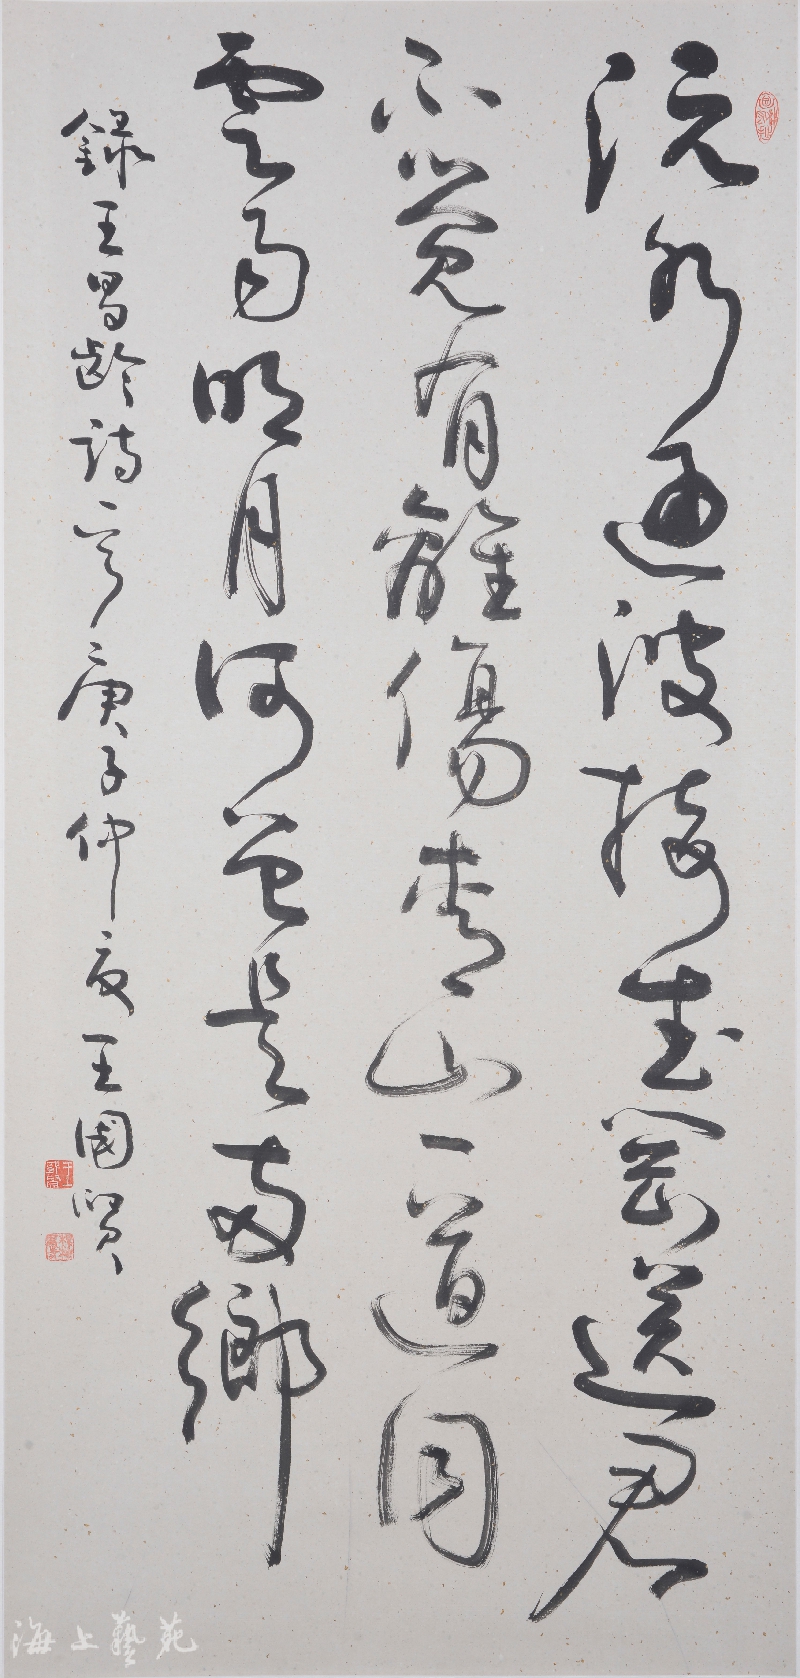 沅水通波接武岡送君
不覺有離傷青山一道同
雲雨明月何曾是兩鄉
錄王昌齡詩一首庚子仲夏王國賢
海上藝苑